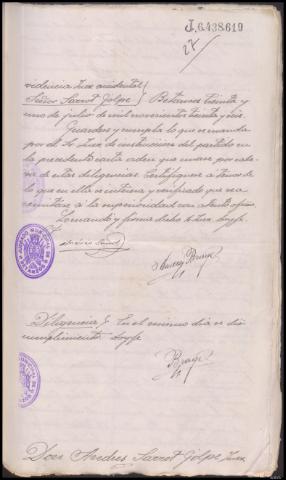 J.6438619
27/
videncia Juez accidental
Señor Sacrot Golpe
Betanzos treinta y
uno de julio de mil novecientos treinta y seis.
Guardese y cumpla lo que se manda
por el Sr Juez de instruccion del partido en
la precedente carta orden que causa por cabe-
za de estas diligencias. Certifiquese a tenor de
lo que en ella se interesa y verificado que sea
remitase a la superioridad con atento oficio.
Lo mando y firma dicho Sr Juez doy fe.
Diligencia/ En el mismo dia se dio
cumplimiento doy fe
Don Andres Sacrot Golpe Juez